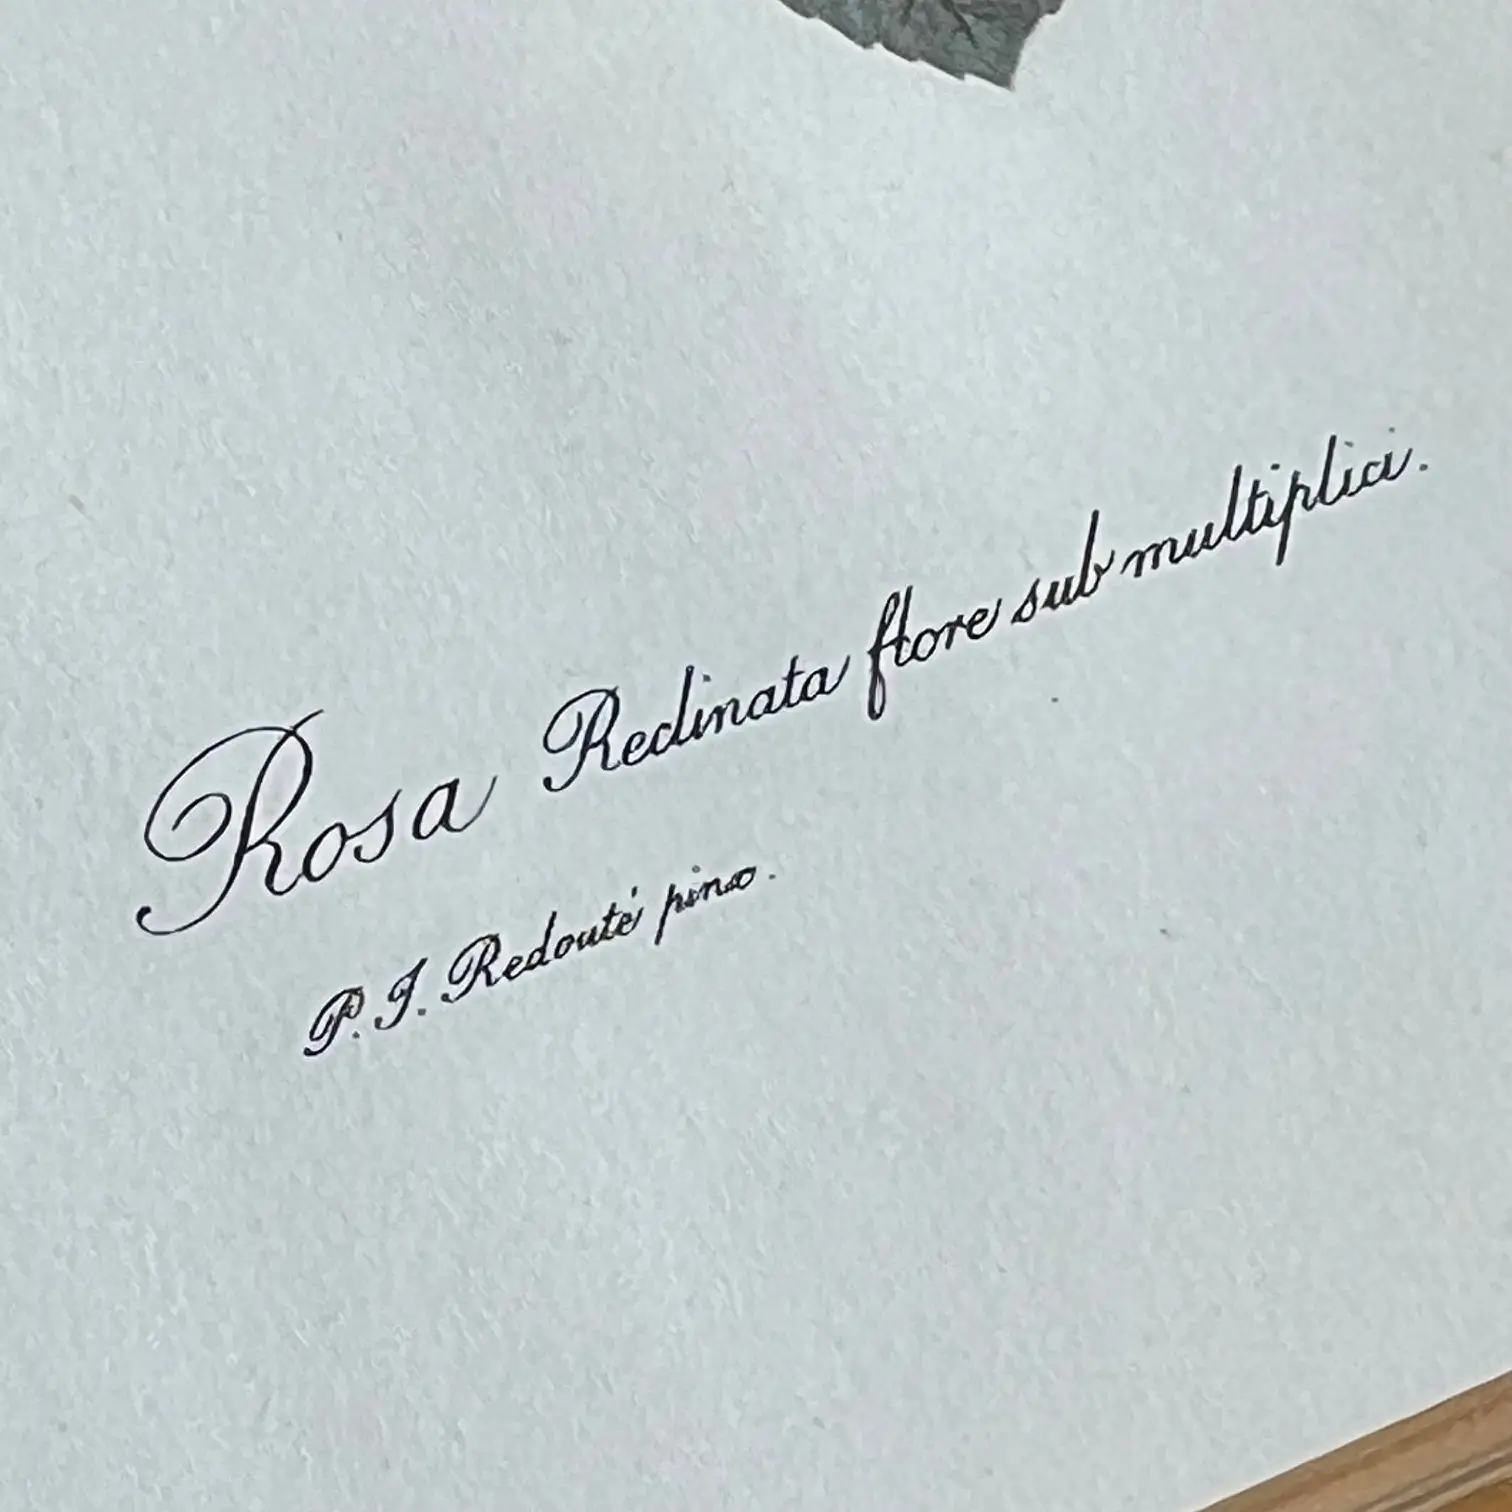 Rosa Reclinata flore sub multiplici.
P. J. Redouté pinx.